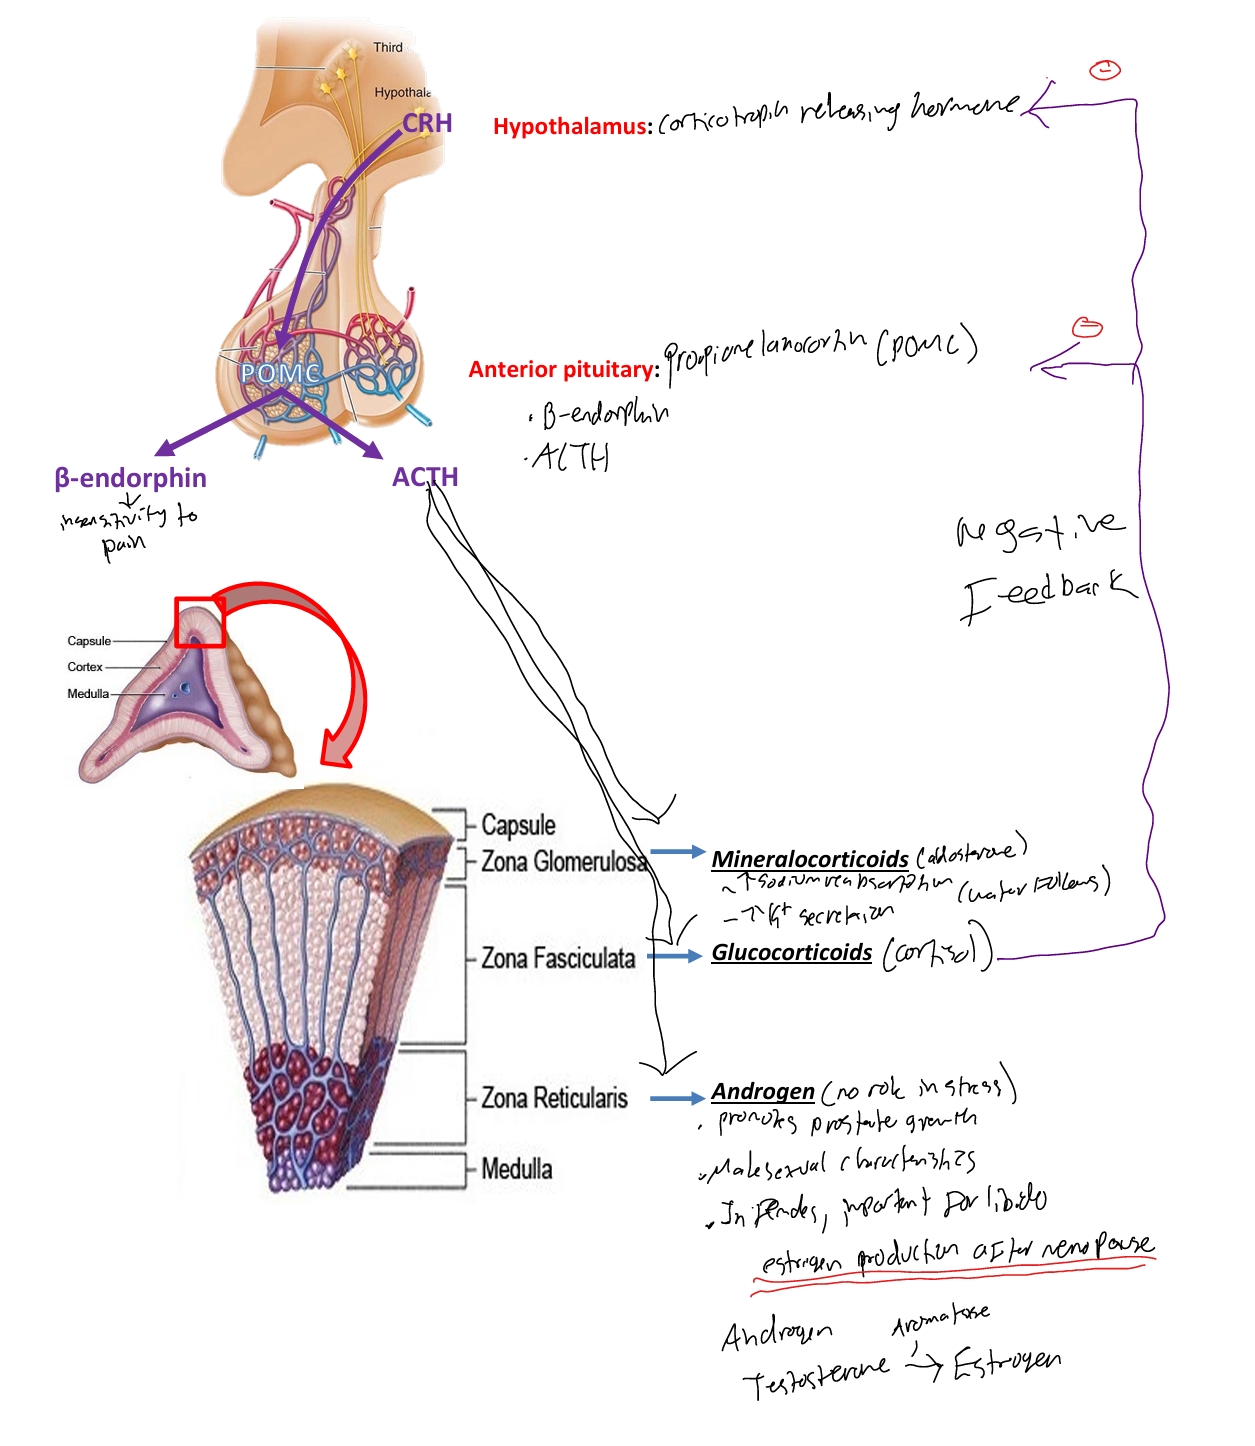 Third
Hypothala
CRH
Hypothalamus: corticotropin releasing hormone
POMC
Anterior pituitary: Proopiomelanocortin (POMC)
· β-endorphin
· ACTH
β-endorphin
ACTH
insensitivity to
pain
negative
Feedback
Capsule
Cortex
Medulla
Capsule
Zona Glomerulosa
Mineralocorticoids (aldosterone)
~ ↑ sodium reabsorption (water follows)
- ↑ K+ secretion
Zona Fasciculata
Glucocorticoids (cortisol)
Zona Reticularis
Androgen (no role in stress)
· promotes prostate growth
· Male sexual characteristics
Medulla
· In females, important for libido
estrogen production after menopause
Androgen
Aromatase
Testosterone → Estrogen